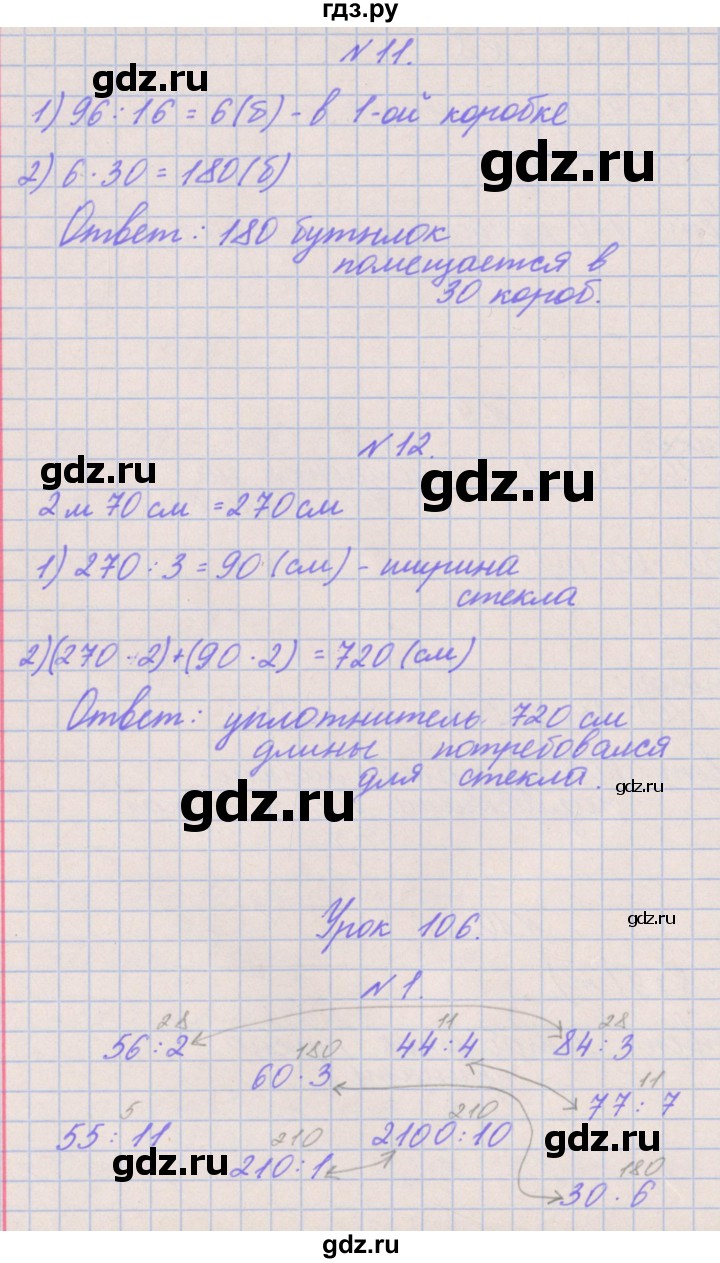 гдз.ру
N 11.
gdz.ru
1) 96 : 16 = 6 (б) - в 1-ой коробке
gdz.ru
2) 6 · 30 = 180 (б)
Ответ: 180 бутылок
помещается в
30 короб.
N 12.
gdz.ru
gdz.ru
2 м 70 см = 270 см
1) 270 : 3 = 90 (см) - ширина
стекла
2) (270 · 2) + (90 · 2) = 720 (см)
Ответ: уплотнитель 720 см
длины потребовался
для стекла.
gdz.ru
gdz.ru
Урок 106.
gdz.ru
N 1.
28 11 28
56 : 2 44 : 4 84 : 3
180
60 · 3
11
77 : 7
5 210 210
55 : 11 210 : 1 2100 : 10
gdz.ru
gdz.ru
180
30 · 6
gdz.ru